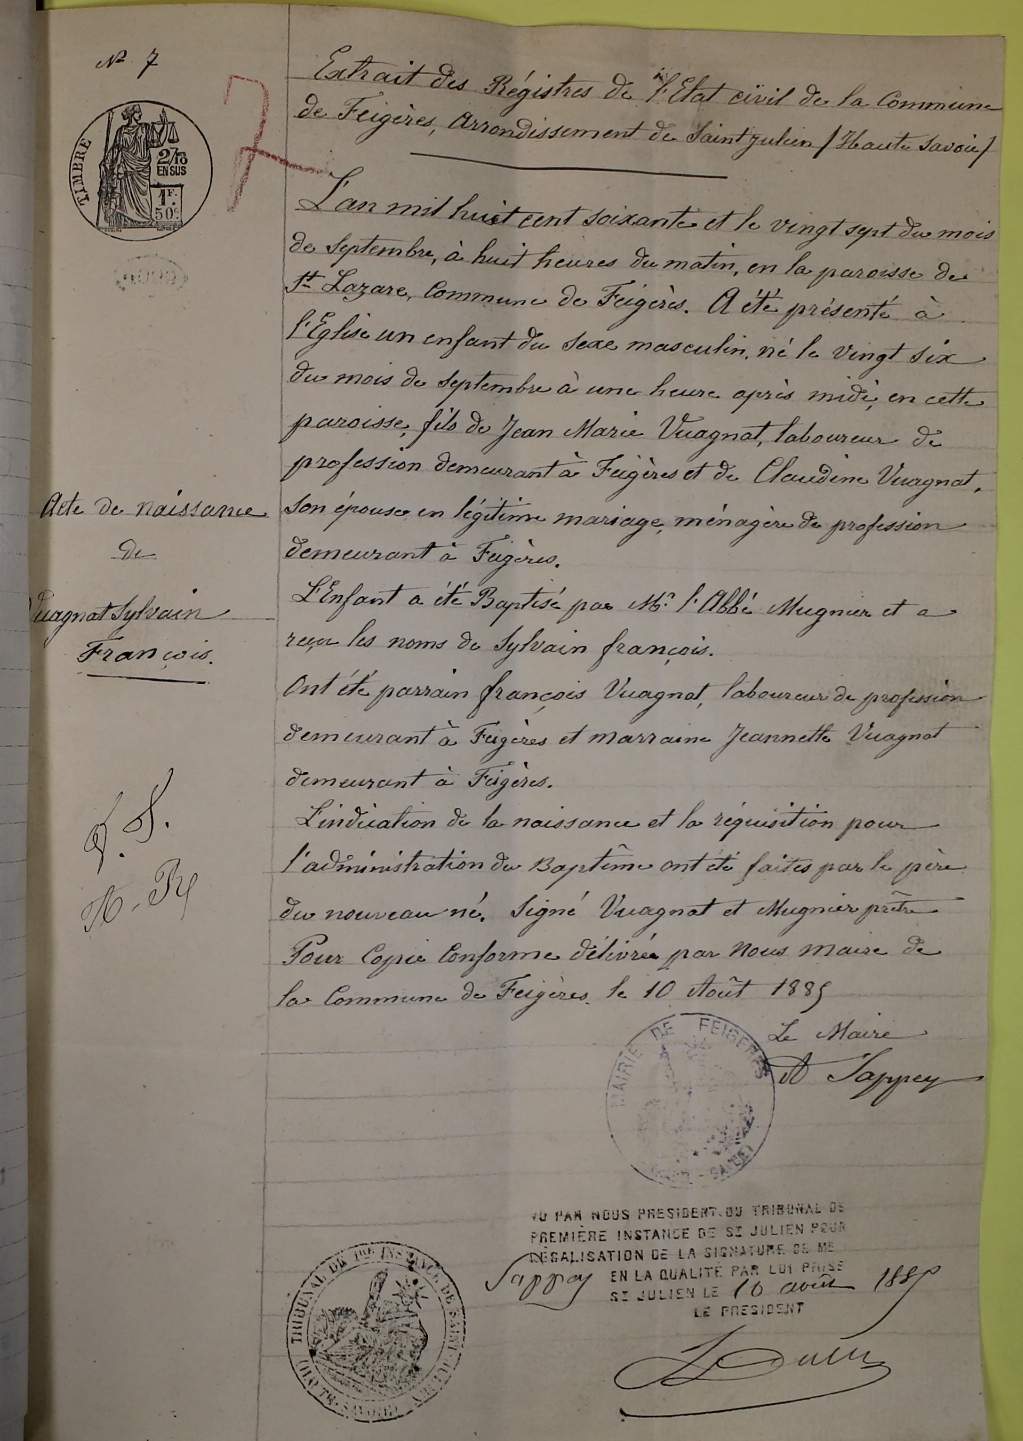 Nº 7
7
TIMBRE
2/10
EN SUS
1F.
50c
Extrait des Régistres de l'Etat civil de la Commune
de Feigères, Arrondissement de Saint Julien (Haute Savoie)
L'an mil huit cent soixante et le vingt sept du mois
de Septembre, à huit heures du matin, en la paroisse de
St Lazare, Commune de Feigères. A été présenté à
l'Eglise un enfant du sexe masculin, né le vingt six
du mois de Septembre à une heure après midi, en cette
paroisse, fils de Jean Marie Vuagnat, laboureur de
profession demeurant à Feigères et de Claudine Vuagnat,
son épouse en légitime mariage, ménagère de profession
demeurant à Feigères.
L'Enfant a été Baptisé par Mr l'Abbé Mugnier et a
reçu les noms de Sylvain françois.
Ont été parrain françois Vuagnat, laboureur de profession
demeurant à Feigères et marraine Jeannette Vuagnat
demeurant à Feigères.
L'indication de la naissance et la réquisition pour
l'administration du Baptême ont été faites par le père
du nouveau né. Signé Vuagnat et Mugnier prêtre
Pour Copie Conforme délivrée par Nous Maire de
la Commune de Feigères. le 10 Août 1885
Le Maire
Sappey
Acte de naissance
de
Vuagnat Sylvain
François.
MAIRIE DE FEIGERES
VU PAR NOUS PRESIDENT DU TRIBUNAL DE
PREMIÈRE INSTANCE DE ST JULIEN POUR
LÉGALISATION DE LA SIGNATURE DE ME
Sappey EN LA QUALITÉ PAR LUI PRISE
ST JULIEN LE 10 août 1885
LE PRESIDENT
TRIBUNAL DE 1RE INSTANCE DE SAINT-JULIEN
(HAUTE-SAVOIE)